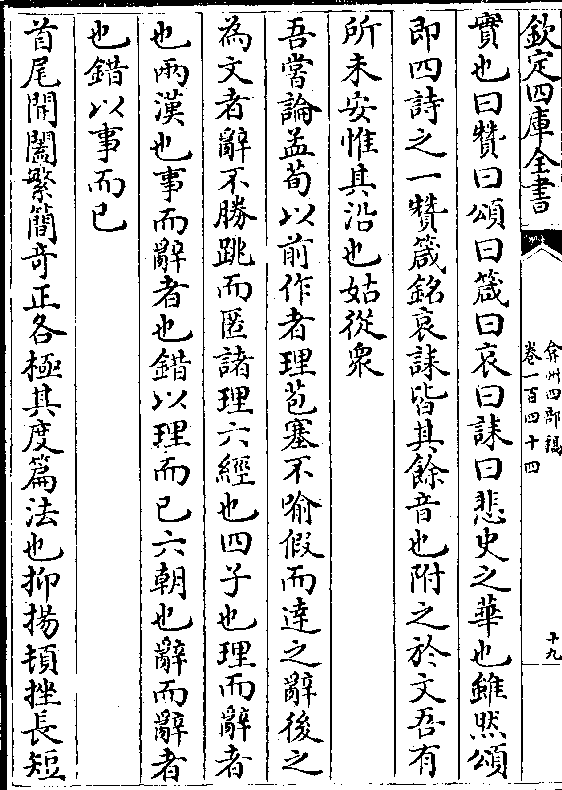 欽定四庫全書
弇州四部稿
卷一百四十四
十九
實也曰贊曰頌曰箴曰哀曰誄曰悲史之華也雖然頌
即四詩之一贊箴銘哀誄皆其餘音也附之於文吾有
所未安惟其沿也姑從衆
吾嘗論孟荀以前作者理苞塞不喻假而達之辭後之
為文者辭不勝跳而匿諸理六經也四子也理而辭者
也兩漢也事而辭者也錯以理而已六朝也辭而辭者
也錯以事而已
首尾開闔繁簡奇正各極其度篇法也抑揚頓挫長短